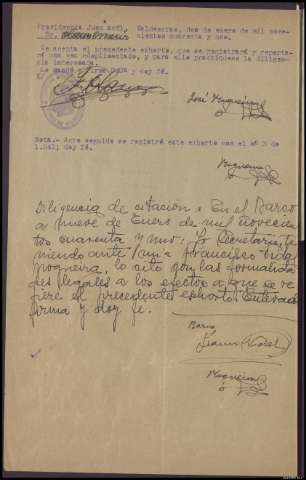 Providencia Juez acctl. Valdeorras, dos de enero de mil nove-
Sr. cientos cuarenta y uno.
Se acepta el precedente exhorto, que se registrará y reporta-
rá una vez cumplimentado, y para ello practíquese la diligen-
cia interesada.
Lo mandó y firma S.Sª y doy fé.
José Nogueira
Nota.- Acto seguido se registró este exhorto con el nº 3 de
1.941; doy fé.
Nogueira
Diligencia de citación = En el Barco
a nueve de Enero de mil novecien
tos cuarenta y uno: Yo Secretario, te
niendo ante mi a Francisco Vidal
Nogueira, lo cité con las formalida
des legales a los efectos a que se re
fiere el precedente exhorto. Enterado
firma y doy fe.
Barco
Vidal
Nogueira